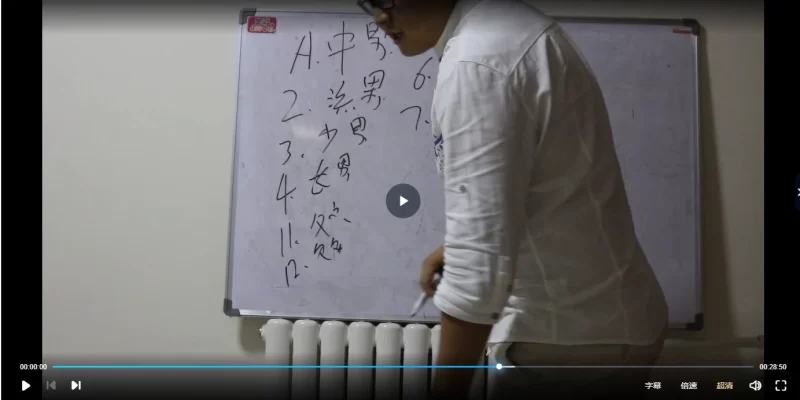 A. 中男
2. 男
3. 少男
4. 长男
11.
12.
6.
7.
00:00:00
00:28:50
字幕
倍速
超清